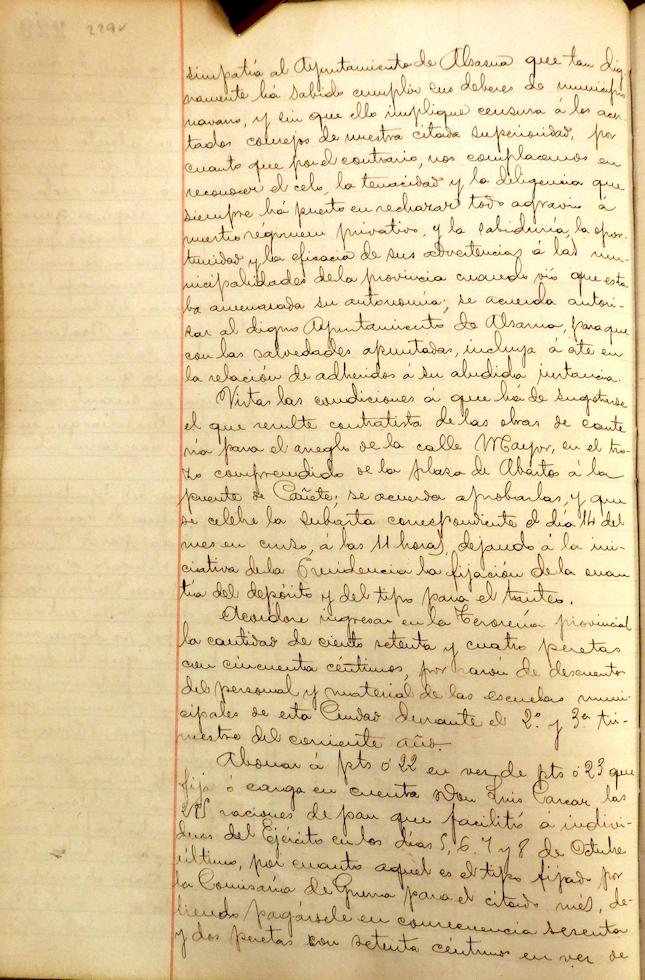 229v
simpatía al Ayuntamiento de Alsasua que tan dig-
namente há sabido cumplir sus deberes de municipio
navarro, y sin que ello implique censura á los acer-
tados consejos de nuestra citada superioridad, por
cuanto que por el contrario, nos complacemos en
reconocer el celo, la tenacidad y la diligencia que
siempre há puesto en rechazar todo agravio á
nuestro régimen privativo, y la sabiduría, la opor-
tunidad y la eficacia de sus advertencias á las mu-
nicipalidades de la provincia cuando vió que esta-
ba amenazada su autonomía; se acuerda autori-
zar al digno Ayuntamiento de Alsasua, para que
con las salvedades apuntadas, incluya á éste en
la relación de adheridos á su aludida instancia.
Vistas las condiciones á que há de sugetarse
el que resulte contratista de las obras de cante
ría para el arreglo de la calle Mayor, en el tro-
zo comprendido de la plaza de Abastos á la
puente de Cañete; se acuerda aprobarlas, y que
se celebre la subasta correspondiente el día 14 del
mes en curso, á las 11 horas, dejando á la ini-
ciativa de la Presidencia la fijación de la cuan
tía del depósito y del tipo para el tranteo.
Acuidose ingresar en la Tesorería provincial
la cantidad de ciento setenta y cuatro pesetas
con cincuenta céntimos, por razón de descuento
del personal y material de las escuelas muni-
cipales de esta Ciudad durante el 2º y 3er tri-
mestre del corriente año.
Abonar á pts 0'22 en vez de pts 0'23 que
fija ó carga en cuenta Don Luis Cascar, las
285 raciones de pan que facilitó á indivi-
duos del Ejército en los días 5, 6, 7 y 8 de Octubre
último, por cuanto aquel es el tipo fijado por
la Comisaría de Guerra para el citado mes, de-
biendo pagársele en consecuencia sesenta
y dos pesetas con setenta céntimos en vez de